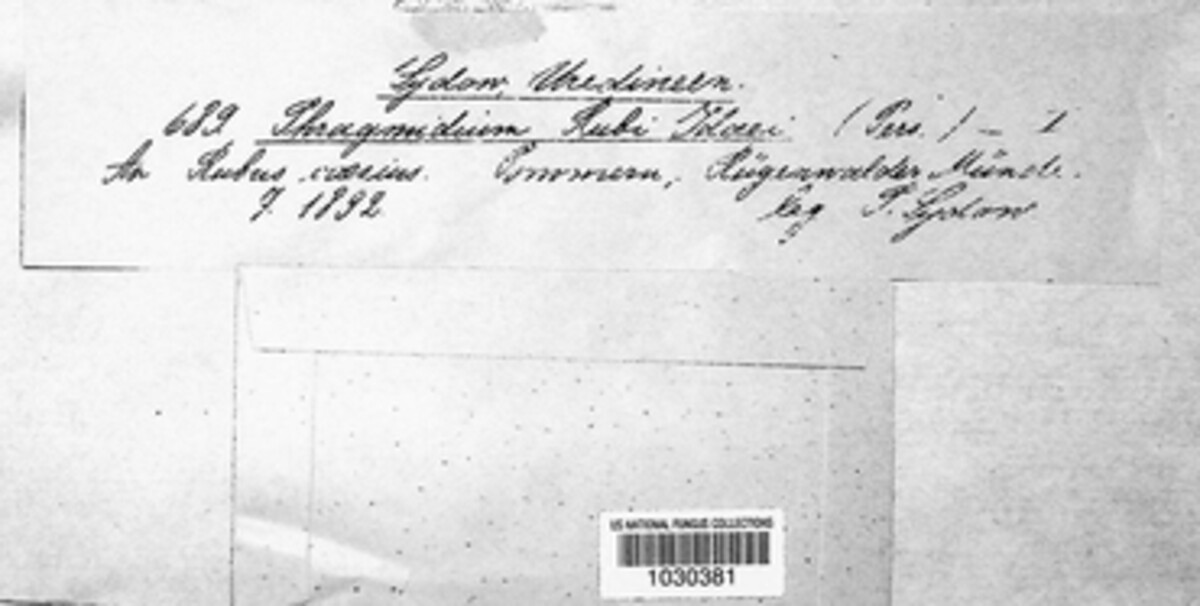 Sydow, Uredineen.
689. Phragmidium Rubi Idaei (Pers.) – I
An Rubus caesius. Pommern, Rügenwalder Münde.
7. 1892. leg P. Sydow
US NATIONAL FUNGUS COLLECTIONS
1030381